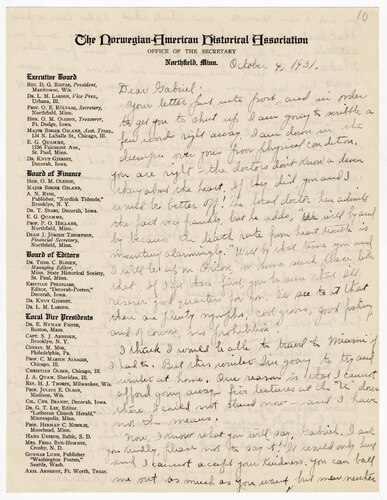 10
The Norwegian-American Historical Association
OFFICE OF THE SECRETARY
Northfield, Minn.
October 4, 1931.
Executive Board
REV. D. G. RISTAD, President,
Manitowoc, Wis.
DR. L. M. LARSON, Vice Pres.,
Urbana, Ill.
PROF. O. E. RÖLVAAG, Secretary,
Northfield, Minn.
HON. O. M. OLESON, Treasurer,
Ft. Dodge, Iowa.
MAJOR BIRGER OSLAND, Asst. Treas.
134 N. LaSalle St., Chicago, Ill.
E. G. QUAMME,
1556 Fairmont Ave.,
St. Paul, Minn.
DR. KNUT GJERSET,
Decorah, Iowa.
Board of Finance
HON. O. M. OLESON,
MAJOR BIRGER OSLAND,
A. N. RYGG,
Publisher, "Nordisk Tidende,"
Brooklyn, N. Y.
DR. T. STABO, Decorah, Iowa.
E. G. QUAMME,
PROF. P. O. HOLLAND,
Northfield, Minn.
DEAN J. JÖRGEN THOMPSON,
Financial Secretary,
Northfield, Minn.
Board of Editors
DR. THEO. C. BLEGEN,
Managing Editor,
Minn. State Historical Society,
St. Paul, Minn.
KRISTIAN PRESTGARD,
Editor, "Decorah-Posten,"
Decorah, Iowa.
DR. KNUT GJERSET,
DR. L. M. LARSON
Local Vice Presidents
DR. E. NYMAN FIGVED,
Boston, Mass.
CAPT. S. J. ARNESEN,
Brooklyn, N. Y.
CONSUL M. MOE,
Philadelphia, Pa.
PROF. C. MARTIN ALSAGER,
Chicago, Ill.
CHRISTIAN OLSEN, Chicago, Ill.
J. A. QUAM, Sheridan, Ill.
REV. H. J. THORPE, Milwaukee, Wis.
PROF. JULIUS E. OLSON,
Madison, Wis.
COL. CHR. BRANDT, Decorah, Iowa.
DR. G. T. LEE, Editor,
"Lutheran Church Herald,"
Minneapolis, Minn.
PROF. HERMAN C. NORDLIE,
Moorhead, Minn.
HANS USTRUD, Baltic, S. D.
MRS. FRIDA BUE-HOMNES,
Crosby, N. D.
GUNNAR LUND, Publisher
"Washington Posten,"
Seattle, Wash.
AXEL ARNESON, Ft. Worth, Texas.
Dear Gabriel:
Your letter just into port, and in order
to get you to shut up, I am going to scribble a
few words right away. I am down in the
dumps over your physical condition.
You are right - the doctors don't know a damn
thing about the heart. If they did you and I
would be better off. The local doctor here admits
the fact very frankly, but he adds, "We will by and
by because the death rate from heart trouble is
mounting alarmingly." Well by that time you and
I will be up on or some such place like
that and if I get there first you be sure that I'll
reserve good quarters for you. I'll see to it that
there are plenty nymphs, cool groves, good fishing
and of course, no prohibition.
I think I would be able to travel to Miami if
I had to. But this winter I'm going to try and
winter at home. One reason is that I cannot
afford going away. five lectures at the "U" does
there I could not stand now - and I have
not the means.
Now, I know what you will say, Gabriel. I ask
you kindly please not to say it! It would only hurt
and I cannot accept your kindness. You can bawl
me out as much as you want, but man neither